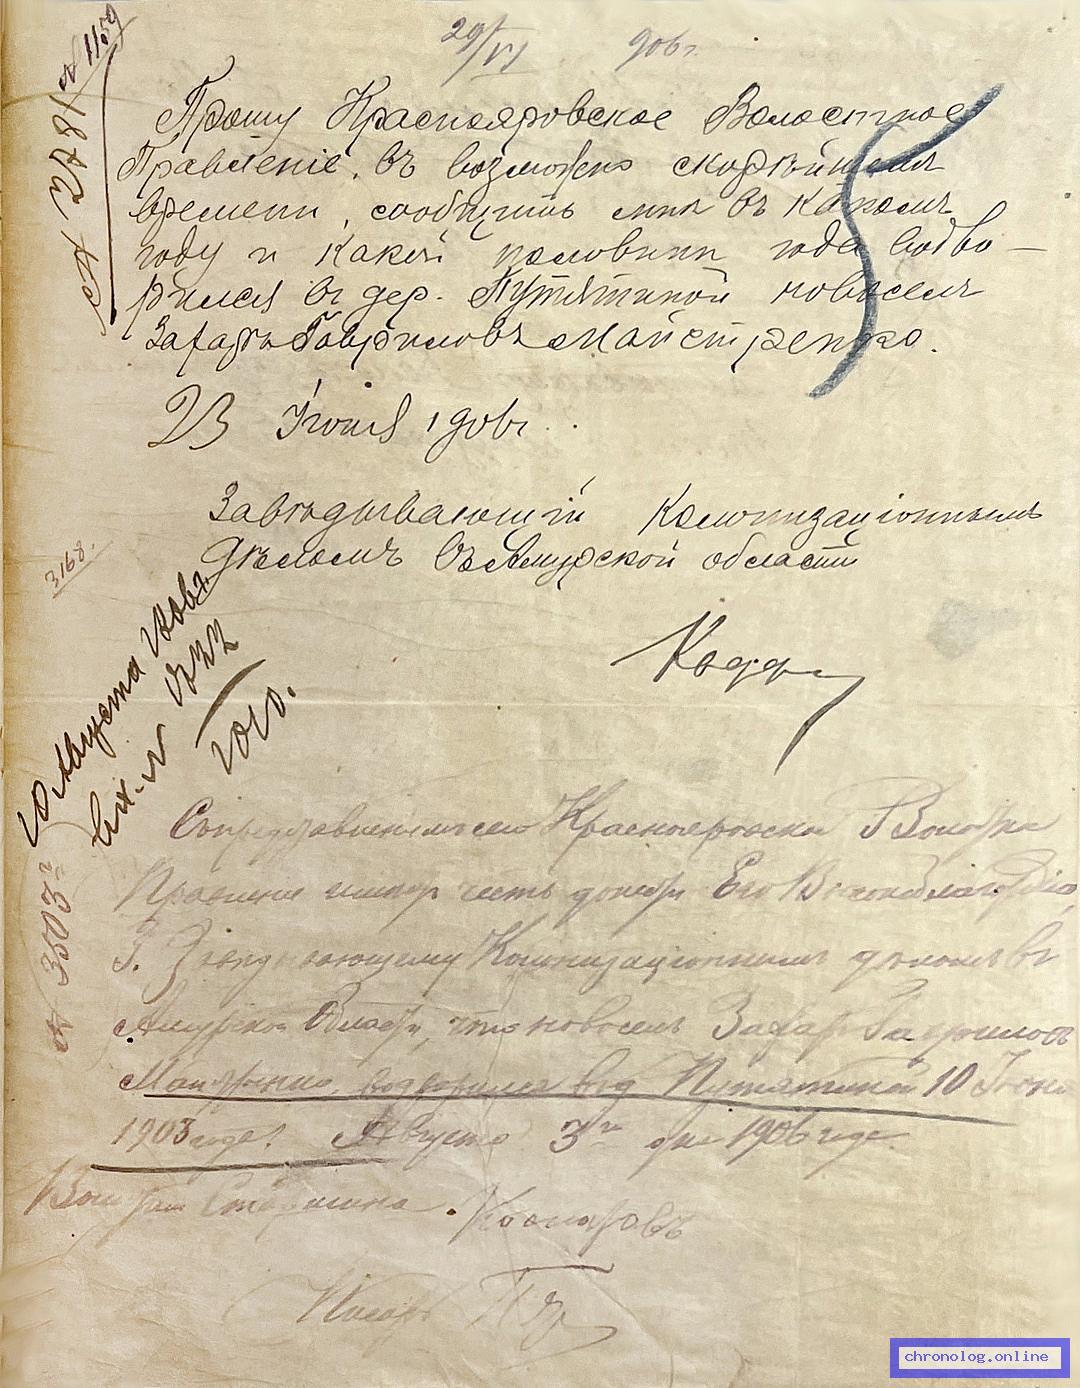 29/VI 906 г.
№ 1159
№ 2781
Прошу Краснояровское Волостное
Правленіе, въ возможно скорѣйшемъ
времени, сообщить мнѣ въ какомъ
году и какой половинѣ года водво-
рился въ дер. Путятиной новоселъ
Захаръ Гавриловъ Майстренко.
23 Іюня 1906 г.
Завѣдывающій Колонизаціоннымъ
Дѣломъ въ Амурской области
3168.
10 Августа 1906 г.
Вх. №
1010.
№ 3503
Съ представленіемъ сего Краснояровское Волостное
Правленіе имѣетъ честь донести Его Высокоблагородію,
Г. Завѣдывающему Колонизаціоннымъ дѣломъ въ
Амурской Области, что новоселъ Захаръ Гавриловъ
Майстренко, водворился въ д. Путятиной 10 Іюня
1903 года. Августа 3 дня 1906 года.
Волостной Старшина
Писарь
chronolog.online